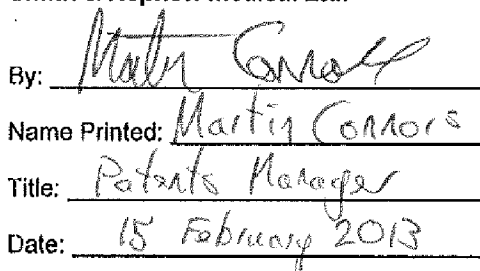 By:
Name Printed: Martin Connors
Title: Patents Manager
Date: 15 February 2013